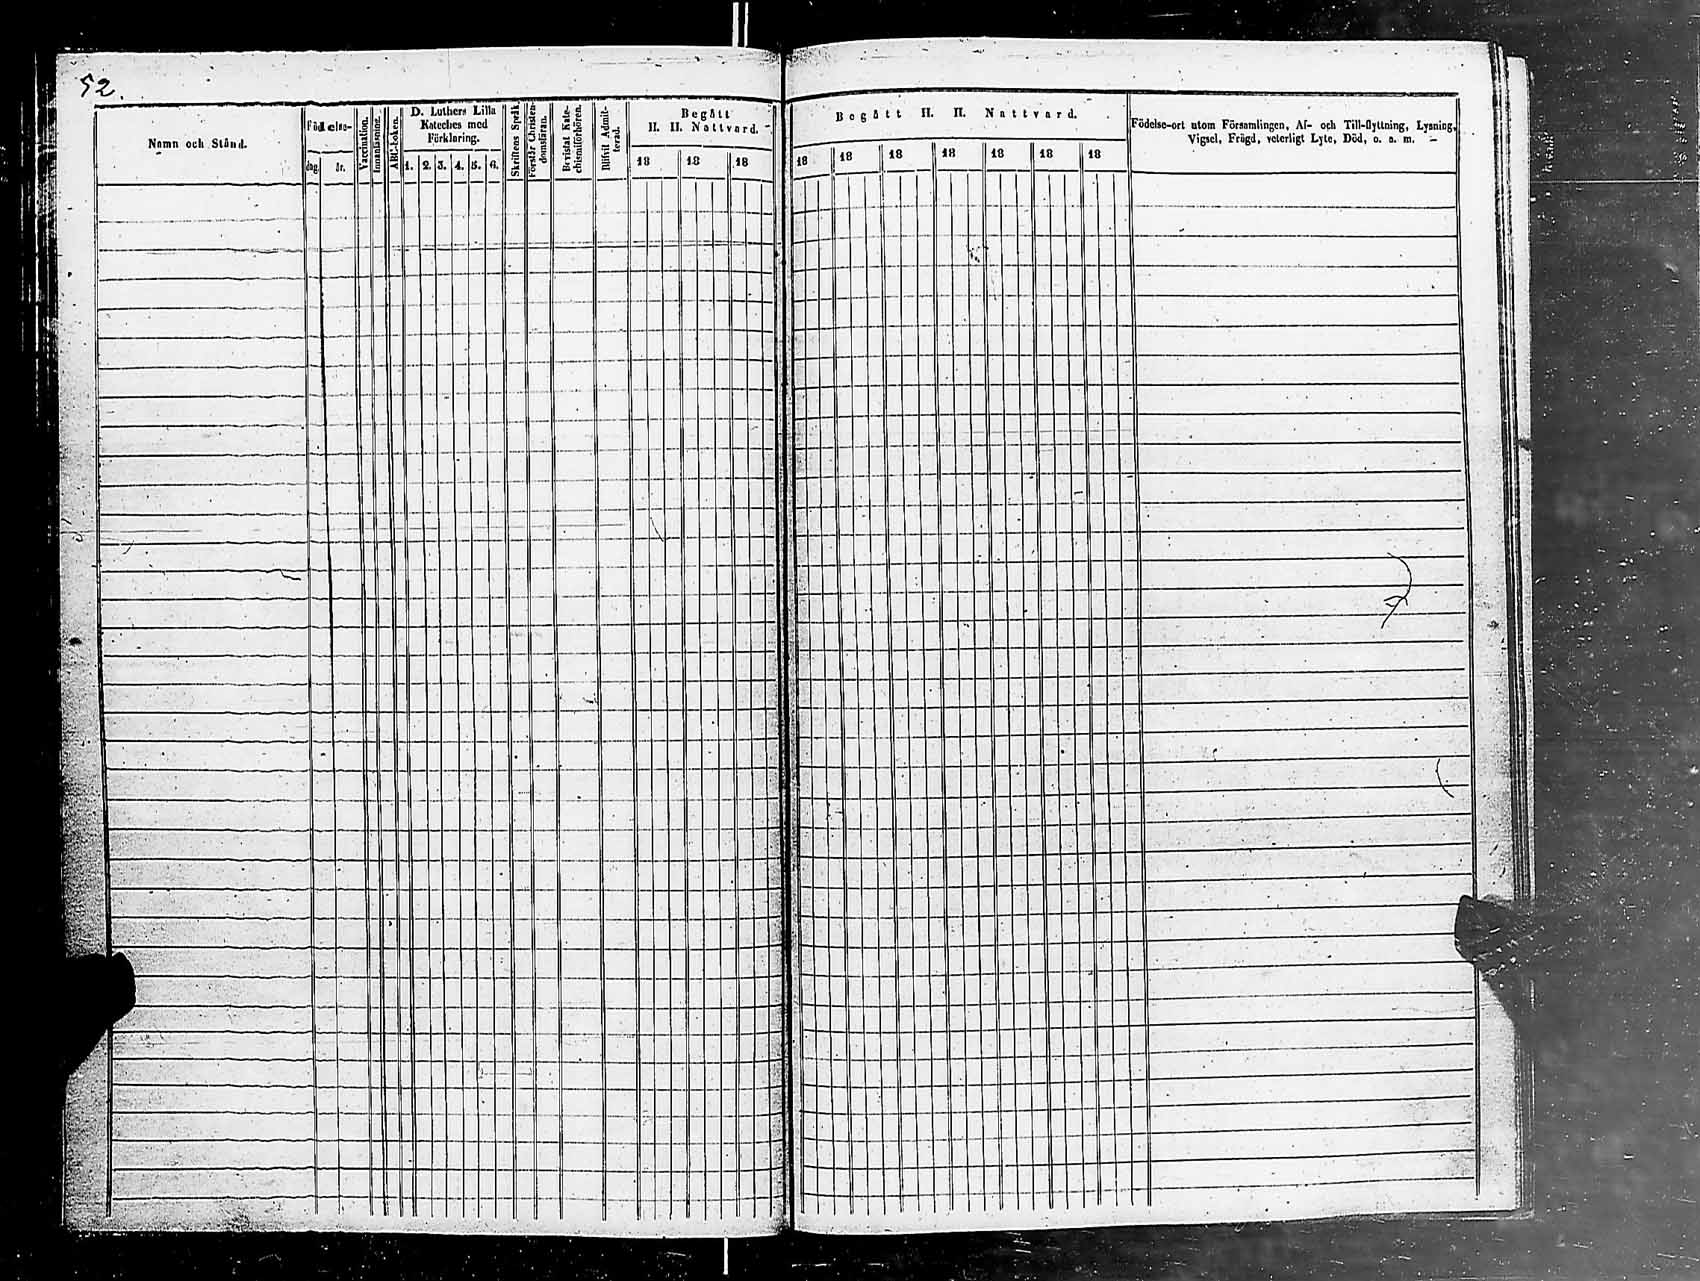 52.
Namn och Stånd.
Födelse-
dag.
år.
Vaccination.
Innanläsning.
ABC-boken.
D. Luthers Lilla
Kateches med
Förklaring.
1. 2. 3. 4. 5. 6.
Skriftens Språk.
Förstår Christen-
domsläran.
Bevistat Kate-
chismiförhören.
Blifvit Admit-
terad.
Begått
H. H. Nattvard.
18 18 18
Begått H. H. Nattvard.
18 18 18 18 18 18 18
Födelse-ort utom Församlingen, Af- och Till-flyttning, Lysning,
Vigsel, Frägd, veterligt Lyte, Död, o. s. m.